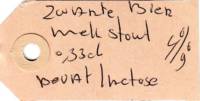 Zwarte Bier
melk stout
0,33cl
BEVAT lactose